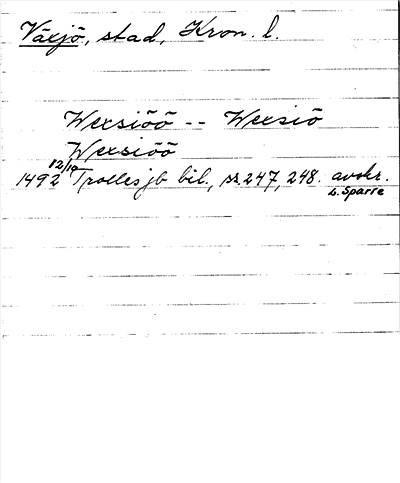 Växjö, stad, Kron. l.
Wexsiöö -- Wexsiö
Wexsiöö
1492 12/10 Trolles jb bil., s. 247, 248. avskr.
L. Sparre